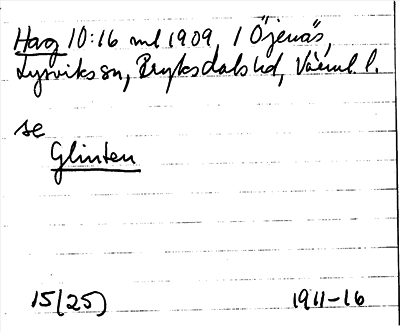 Hag 10:16 ml 1909, i Öjenäs,
Lysviks sn, Fryksdals hd, Värml. l.
se
Glinten
15(25) 1911-16